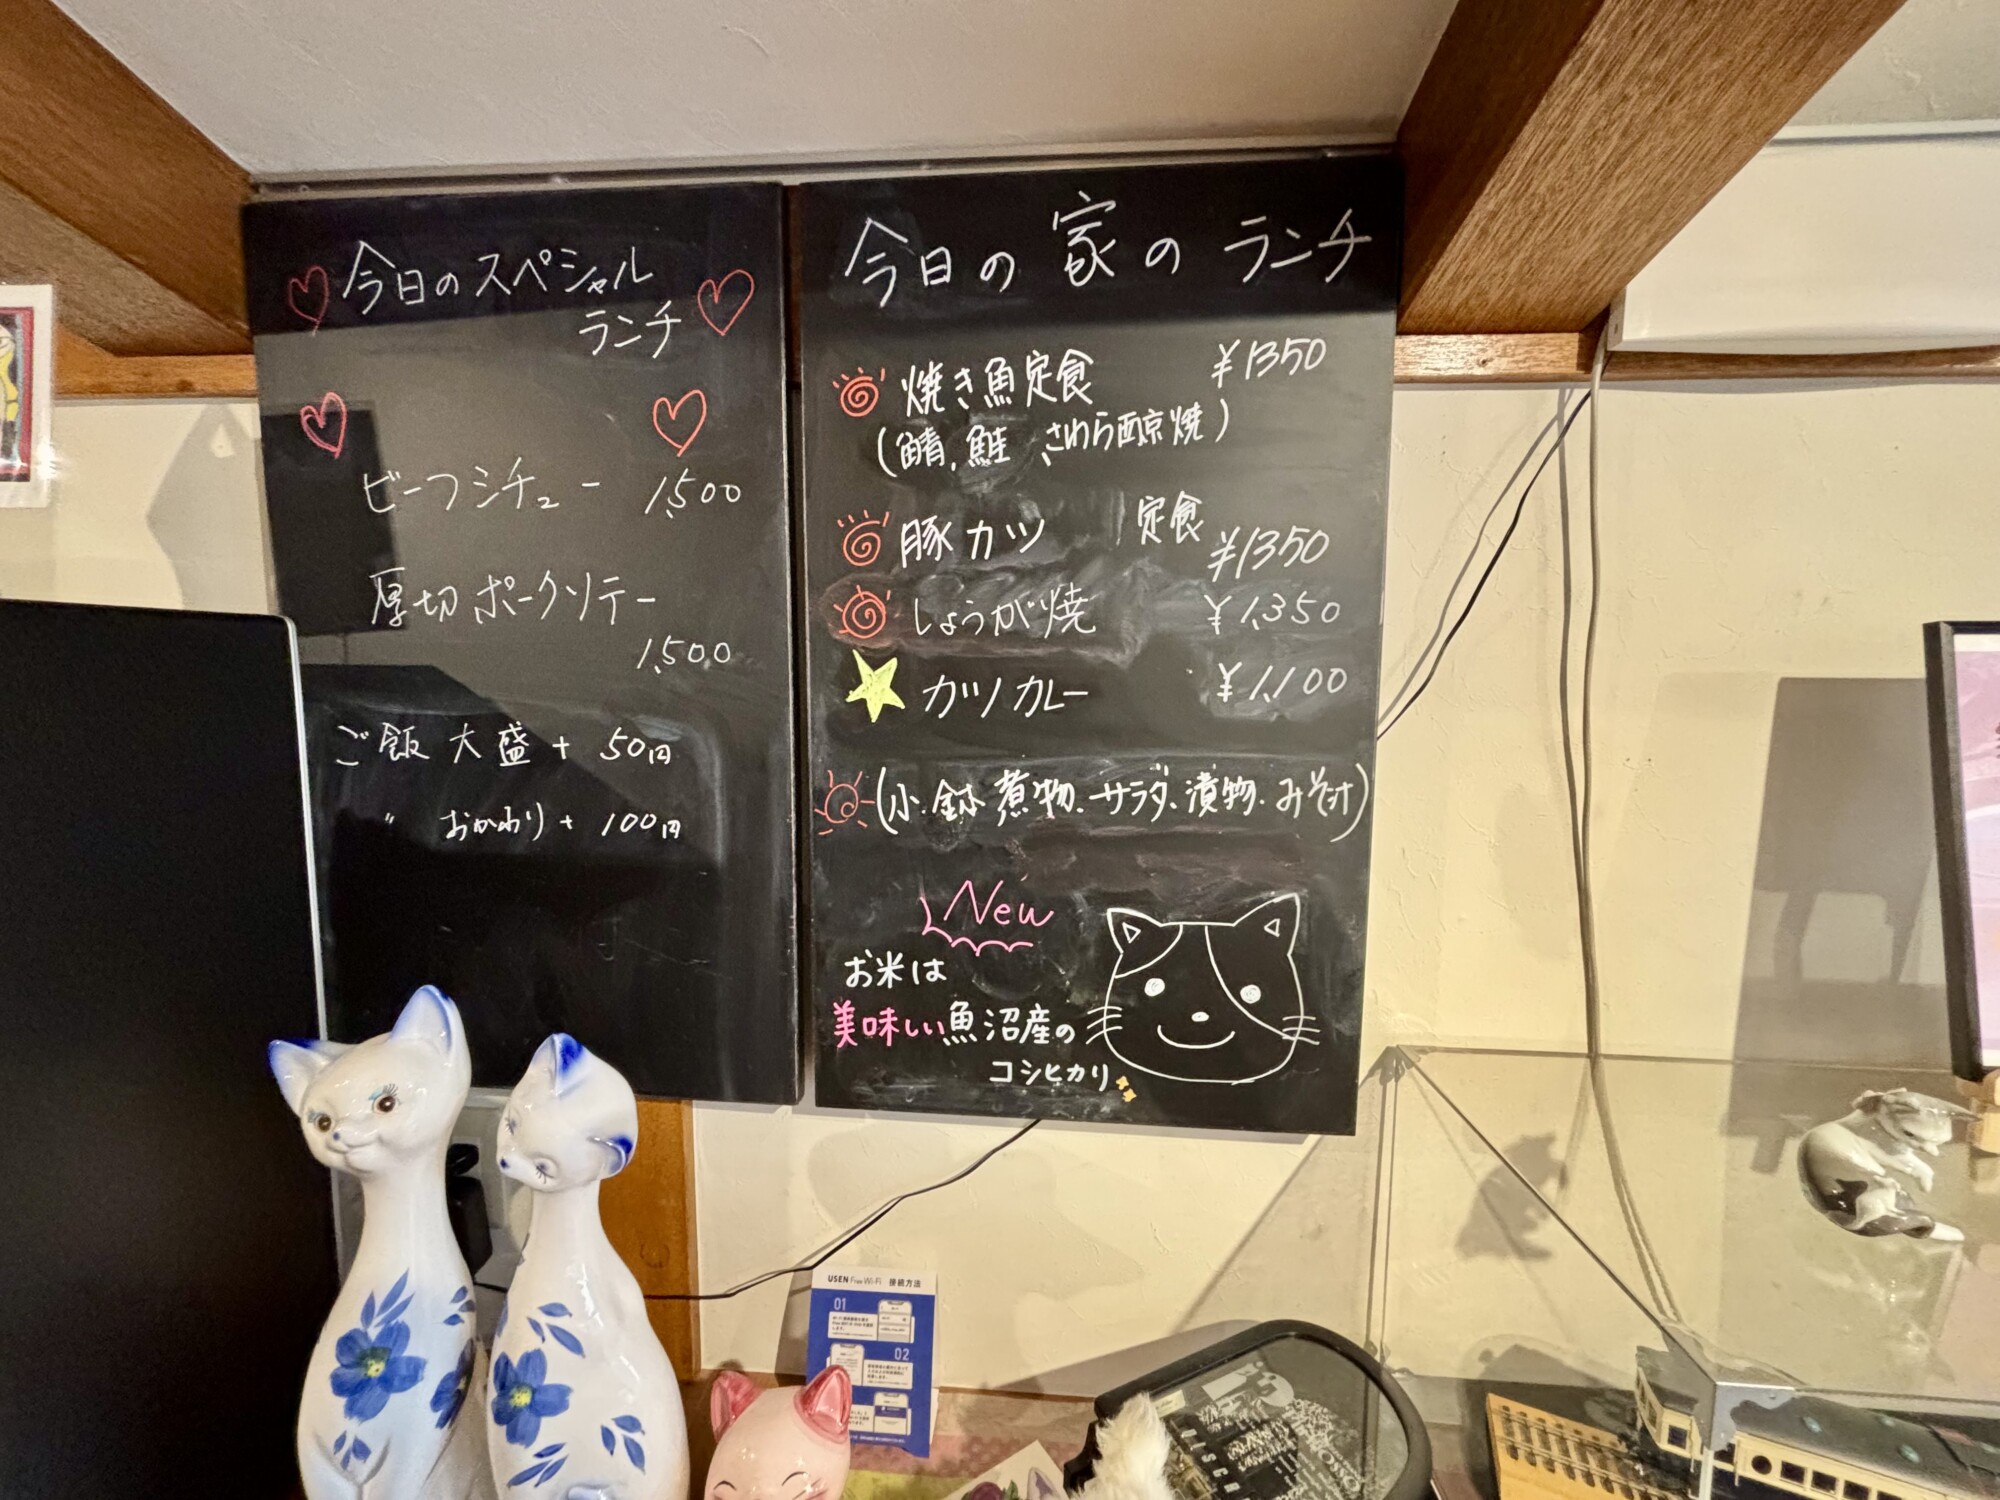 今日のスペシャル
ランチ
ビーフシチュー 1,500
厚切ポークソテー
1,500
ご飯 大盛 + 50円
〃 おかわり + 100円
今日の家のランチ
焼き魚定食 ¥1350
(鯖、鮭、さわら西京焼)
豚カツ 定食 ¥1350
しょうが焼 ¥1,350
カツカレー ¥1,100
(小鉢 煮物、サラダ、漬物、みそ汁)
New
お米は
美味しい魚沼産の
コシヒカリ
USEN Free Wi-Fi 接続方法
01
02